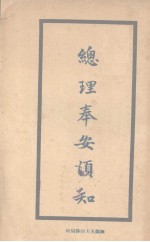 總理奉安須知